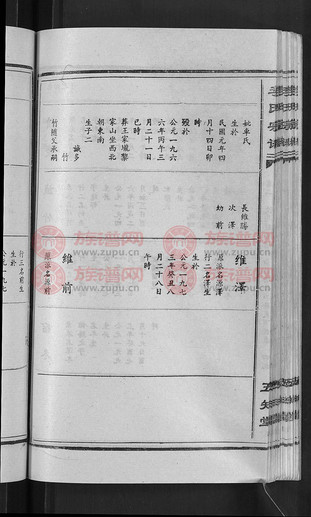 妣李氏
生於
民國元年四
月十四日卯
時
殁於
公元一九六
六年丙午三
月二十一日
巳時
葬王家壠黎
家山坐西北
朝東南
生子二
誠多
竹
竹隨父承嗣
長維勝
次澤
幼前
維澤
原派名源澤
行二名澤生
生於
公元一九七
三年癸丑八
月二十八日
午時
維前
原派名源前
行三名前生
生於
公元一九七
族谱网
www.zupu.cn